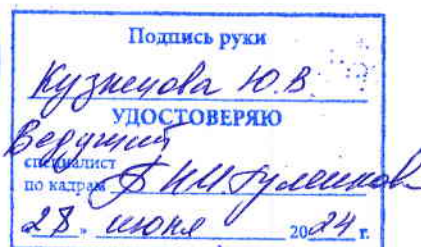 Подпись руки
Кузнецова Ю.В.
УДОСТОВЕРЯЮ
Ведущий
специалист
по кадрам
28 " июня 2024 г.